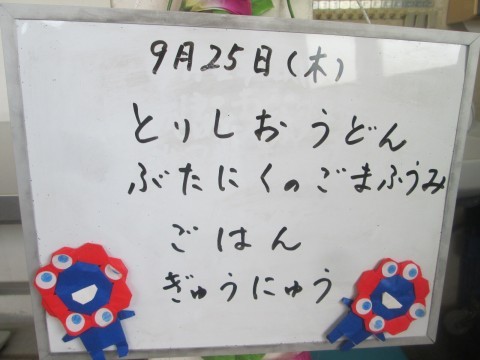 9月25日(木)
とりしおうどん
ぶたにくのごまふうみ
ごはん
ぎゅうにゅう